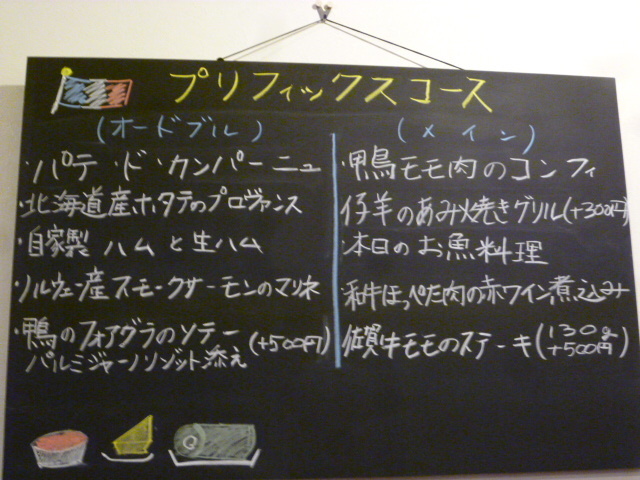 プリフィックスコース
(オードブル)
・パテ・ド・カンパーニュ
・北海道産ホタテのプロヴァンス
・自家製ハムと生ハム
・ノルウェー産スモークサーモンのマリネ
・鴨のフォアグラのソテー (+500円)
パルミジャーノリゾット添え
(メイン)
・鴨モモ肉のコンフィ
仔羊のあみ焼きグリル(+300円)
・本日のお魚料理
・和牛ほっぺた肉の赤ワイン煮込み
・佐賀牛モモのステーキ(130g +500円)